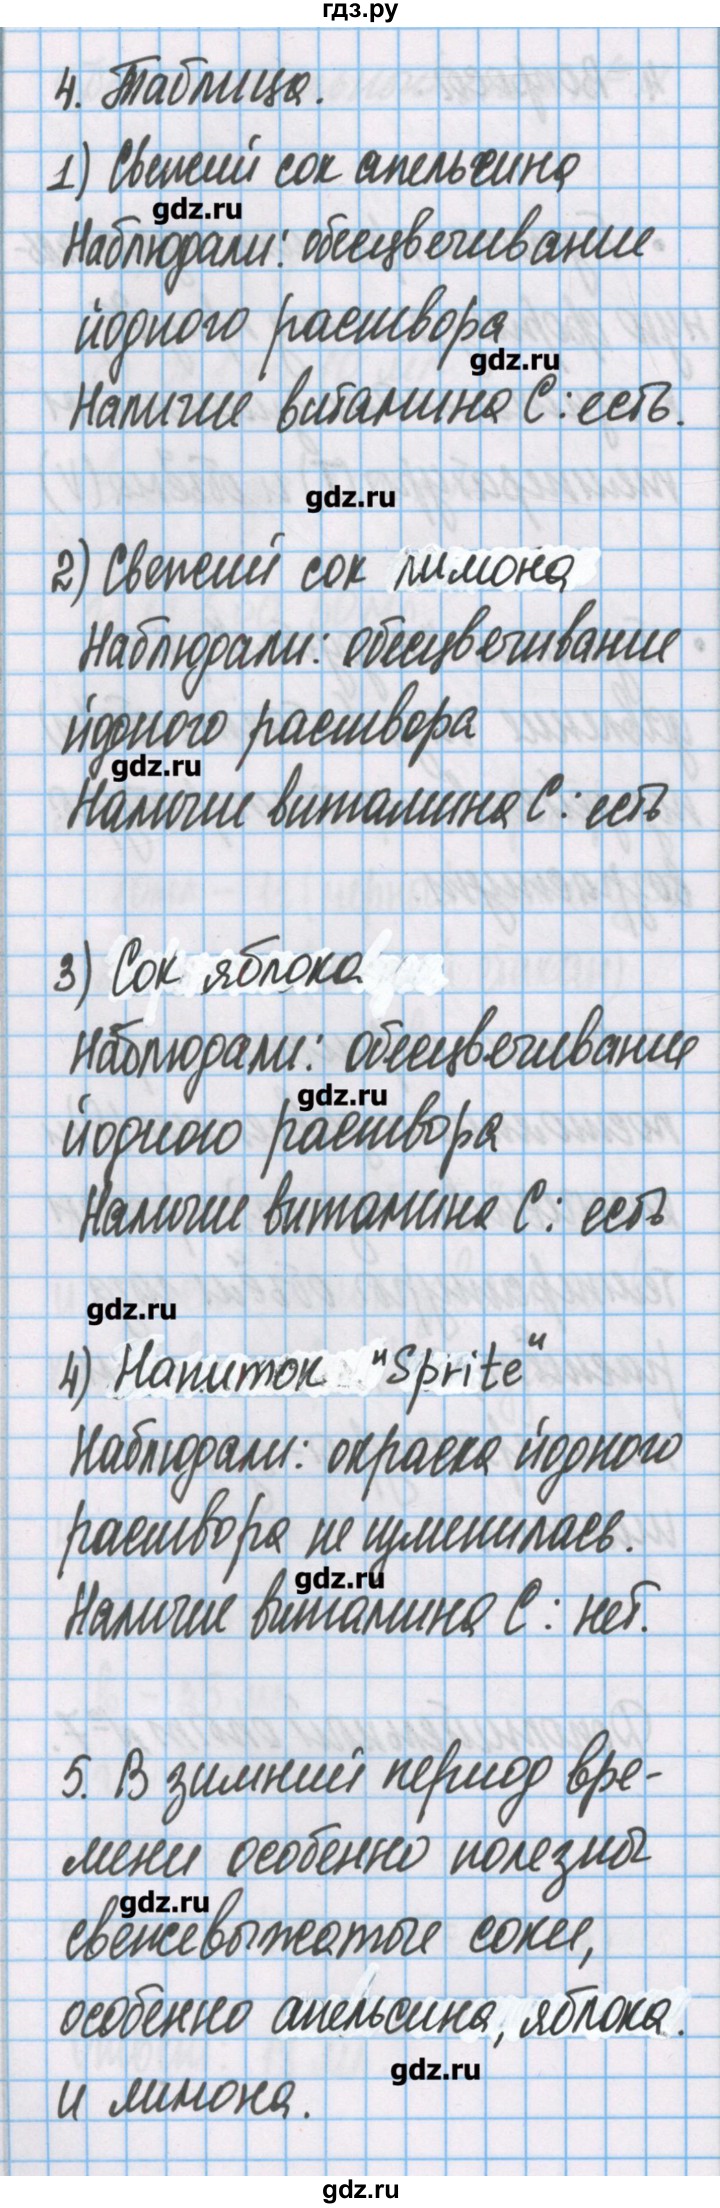 гдз.ру
4. Таблица.
1) Свежий сок апельсина
gdz.ru
Наблюдали: обесцвечивание
йодного раствора
gdz.ru
Наличие витамина С: есть.
gdz.ru
2) Свежий сок лимона
Наблюдали: обесцвечивание
йодного раствора
gdz.ru
Наличие витамина С: есть
3) Сок яблока
Наблюдали: обесцвечивание
gdz.ru
йодного раствора
Наличие витамина С: есть
gdz.ru
4) Напиток "Sprite"
Наблюдали: окраска йодного
раствора не изменилась.
gdz.ru
Наличие витамина С: нет.
5. В зимний период вре-
мени особенно полезны
gdz.ru
свежевыжатые соки,
особенно апельсина, яблока.
gdz.ru
и лимона.
gdz.ru